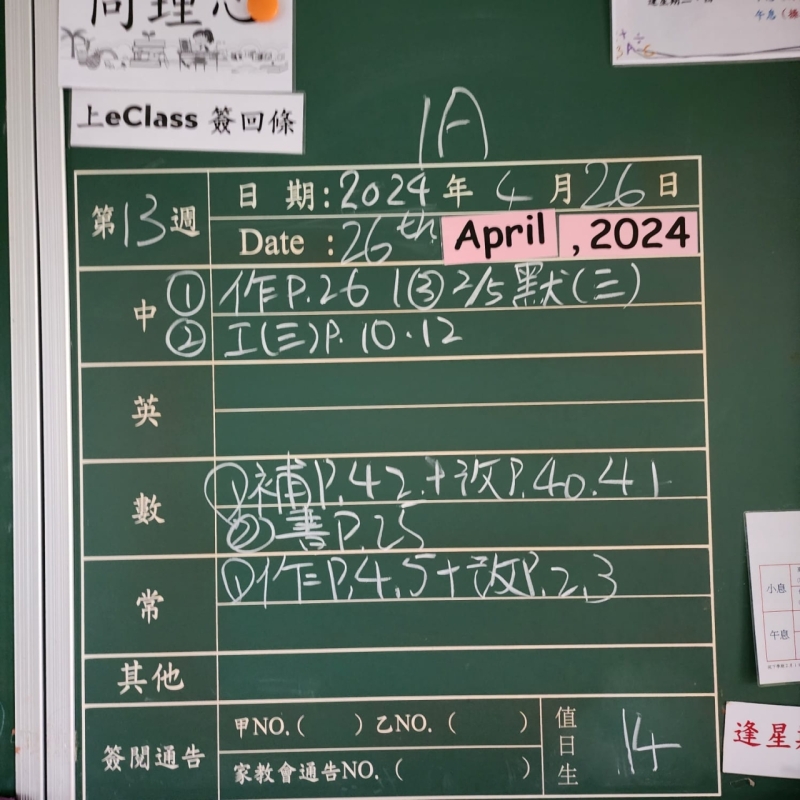 同理心
上eClass 簽回條
1A
第13週
日 期:2024年 4 月26日
Date :26th April , 2024
中 ① 作P.26 ③ 2/5默(三)
② 工(三)P.10.12
英
數 ① 補P.42.+改P.40.41
② 書P.25
常 ① 作=P.4.5+改P.2.3
其他
簽閱通告
甲NO.( ) 乙NO.( )
家教會通告NO.( )
值日生 14
小息
午息
逢星
午息